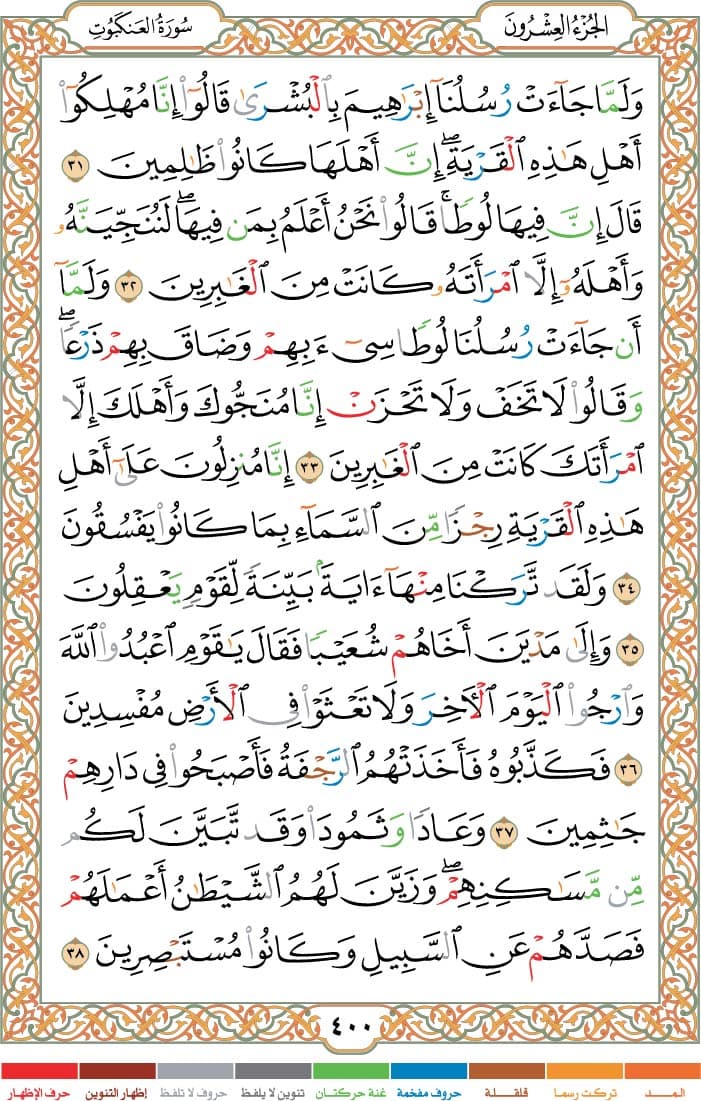 الجُزْءُ العِشْرُونَ
سُورَةُ العَنكَبُوتِ
وَلَمَّا جَآءَتْ رُسُلُنَآ إِبْرَٰهِيمَ بِٱلْبُشْرَىٰ قَالُوٓا۟ إِنَّا مُهْلِكُوٓا۟
أَهْلِ هَٰذِهِ ٱلْقَرْيَةِ ۖ إِنَّ أَهْلَهَا كَانُوا۟ ظَٰلِمِينَ ٣١
قَالَ إِنَّ فِيهَا لُوطًا ۚ قَالُوا۟ نَحْنُ أَعْلَمُ بِمَن فِيهَا ۖ لَنُنَجِّيَنَّهُۥ
وَأَهْلَهُۥٓ إِلَّا ٱمْرَأَتَهُۥ كَانَتْ مِنَ ٱلْغَٰبِرِينَ ٣٢ وَلَمَّآ
أَن جَآءَتْ رُسُلُنَا لُوطًا سِىٓءَ بِهِمْ وَضَاقَ بِهِمْ ذَرْعًا ۖ
وَقَالُوا۟ لَا تَخَفْ وَلَا تَحْزَنْ إِنَّا مُنَجُّوكَ وَأَهْلَكَ إِلَّا
ٱمْرَأَتَكَ كَانَتْ مِنَ ٱلْغَٰبِرِينَ ٣٣ إِنَّا مُنزِلُونَ عَلَىٰٓ أَهْلِ
هَٰذِهِ ٱلْقَرْيَةِ رِجْزًا مِّنَ ٱلسَّمَآءِ بِمَا كَانُوا۟ يَفْسُقُونَ
٣٤ وَلَقَد تَّرَكْنَا مِنْهَآ ءَايَةًۢ بَيِّنَةً لِّقَوْمٍ يَعْقِلُونَ
٣٥ وَإِلَىٰ مَدْيَنَ أَخَاهُمْ شُعَيْبًا فَقَالَ يَٰقَوْمِ ٱعْبُدُوا۟ ٱللَّهَ
وَٱرْجُوا۟ ٱلْيَوْمَ ٱلْءَاخِرَ وَلَا تَعْثَوْا۟ فِى ٱلْأَرْضِ مُفْسِدِينَ
٣٦ فَكَذَّبُوهُ فَأَخَذَتْهُمُ ٱلرَّجْفَةُ فَأَصْبَحُوا۟ فِى دَارِهِمْ
جَٰثِمِينَ ٣٧ وَعَادًا وَثَمُودَا۟ وَقَد تَّبَيَّنَ لَكُم
مِّن مَّسَٰكِنِهِمْ ۖ وَزَيَّنَ لَهُمُ ٱلشَّيْطَٰنُ أَعْمَٰلَهُمْ
فَصَدَّهُمْ عَنِ ٱلسَّبِيلِ وَكَانُوا۟ مُسْتَبْصِرِينَ ٣٨
٤٠٠
المـــد تركت رسما قلقلة حروف مفخمة غنة حركتان تنوين لا يلفظ حروف لا تلفظ إظهار التنوين حرف الإظهار